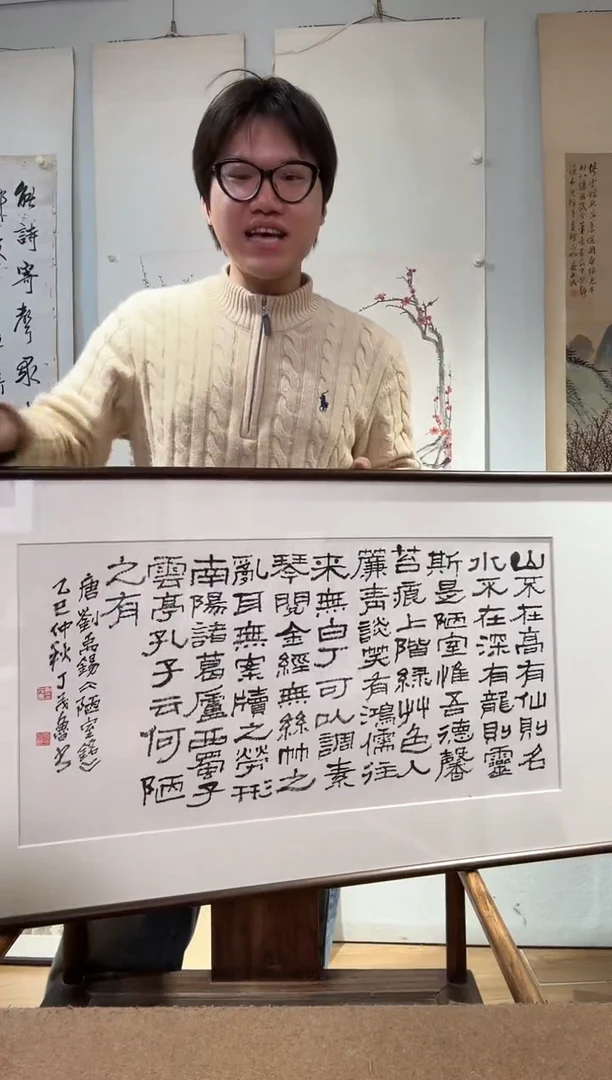 山不在高有仙則名
水不在深有龍則靈
斯是陋室惟吾德馨
苔痕上階緑艸色入
簾青談笑有鴻儒往
来無白丁可以調素
琴閱金經無絲竹之
亂耳無案牘之勞形
南陽諸葛廬西蜀子
雲亭孔子云何陋
之有
唐劉禹錫《陋室銘》
乙巳仲秋丁茂魯书
詩寄聲